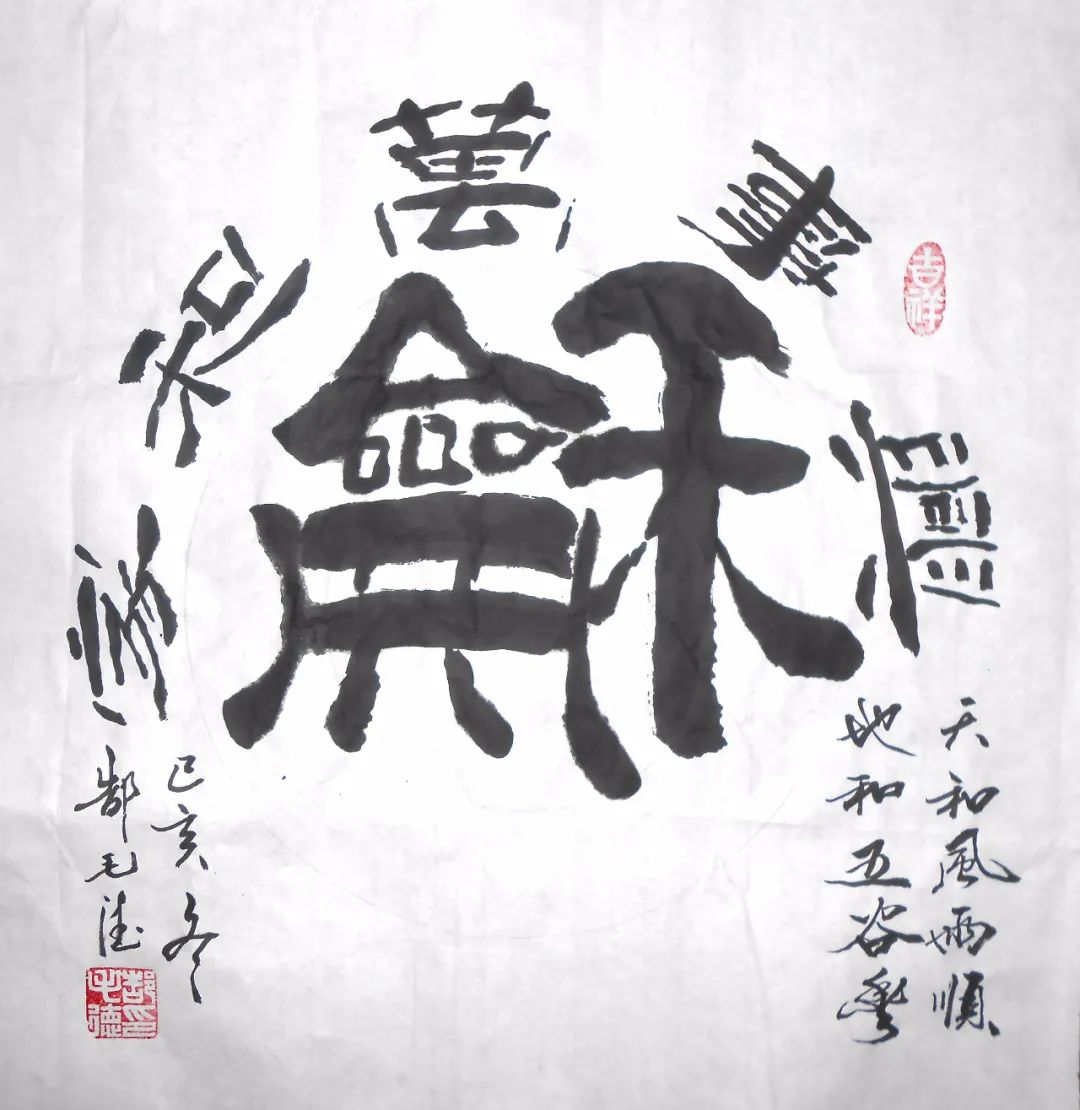 家和萬事興
龢
吉祥
天和風雨順
地和五谷豐
己亥冬
郜毛德
郜印毛德